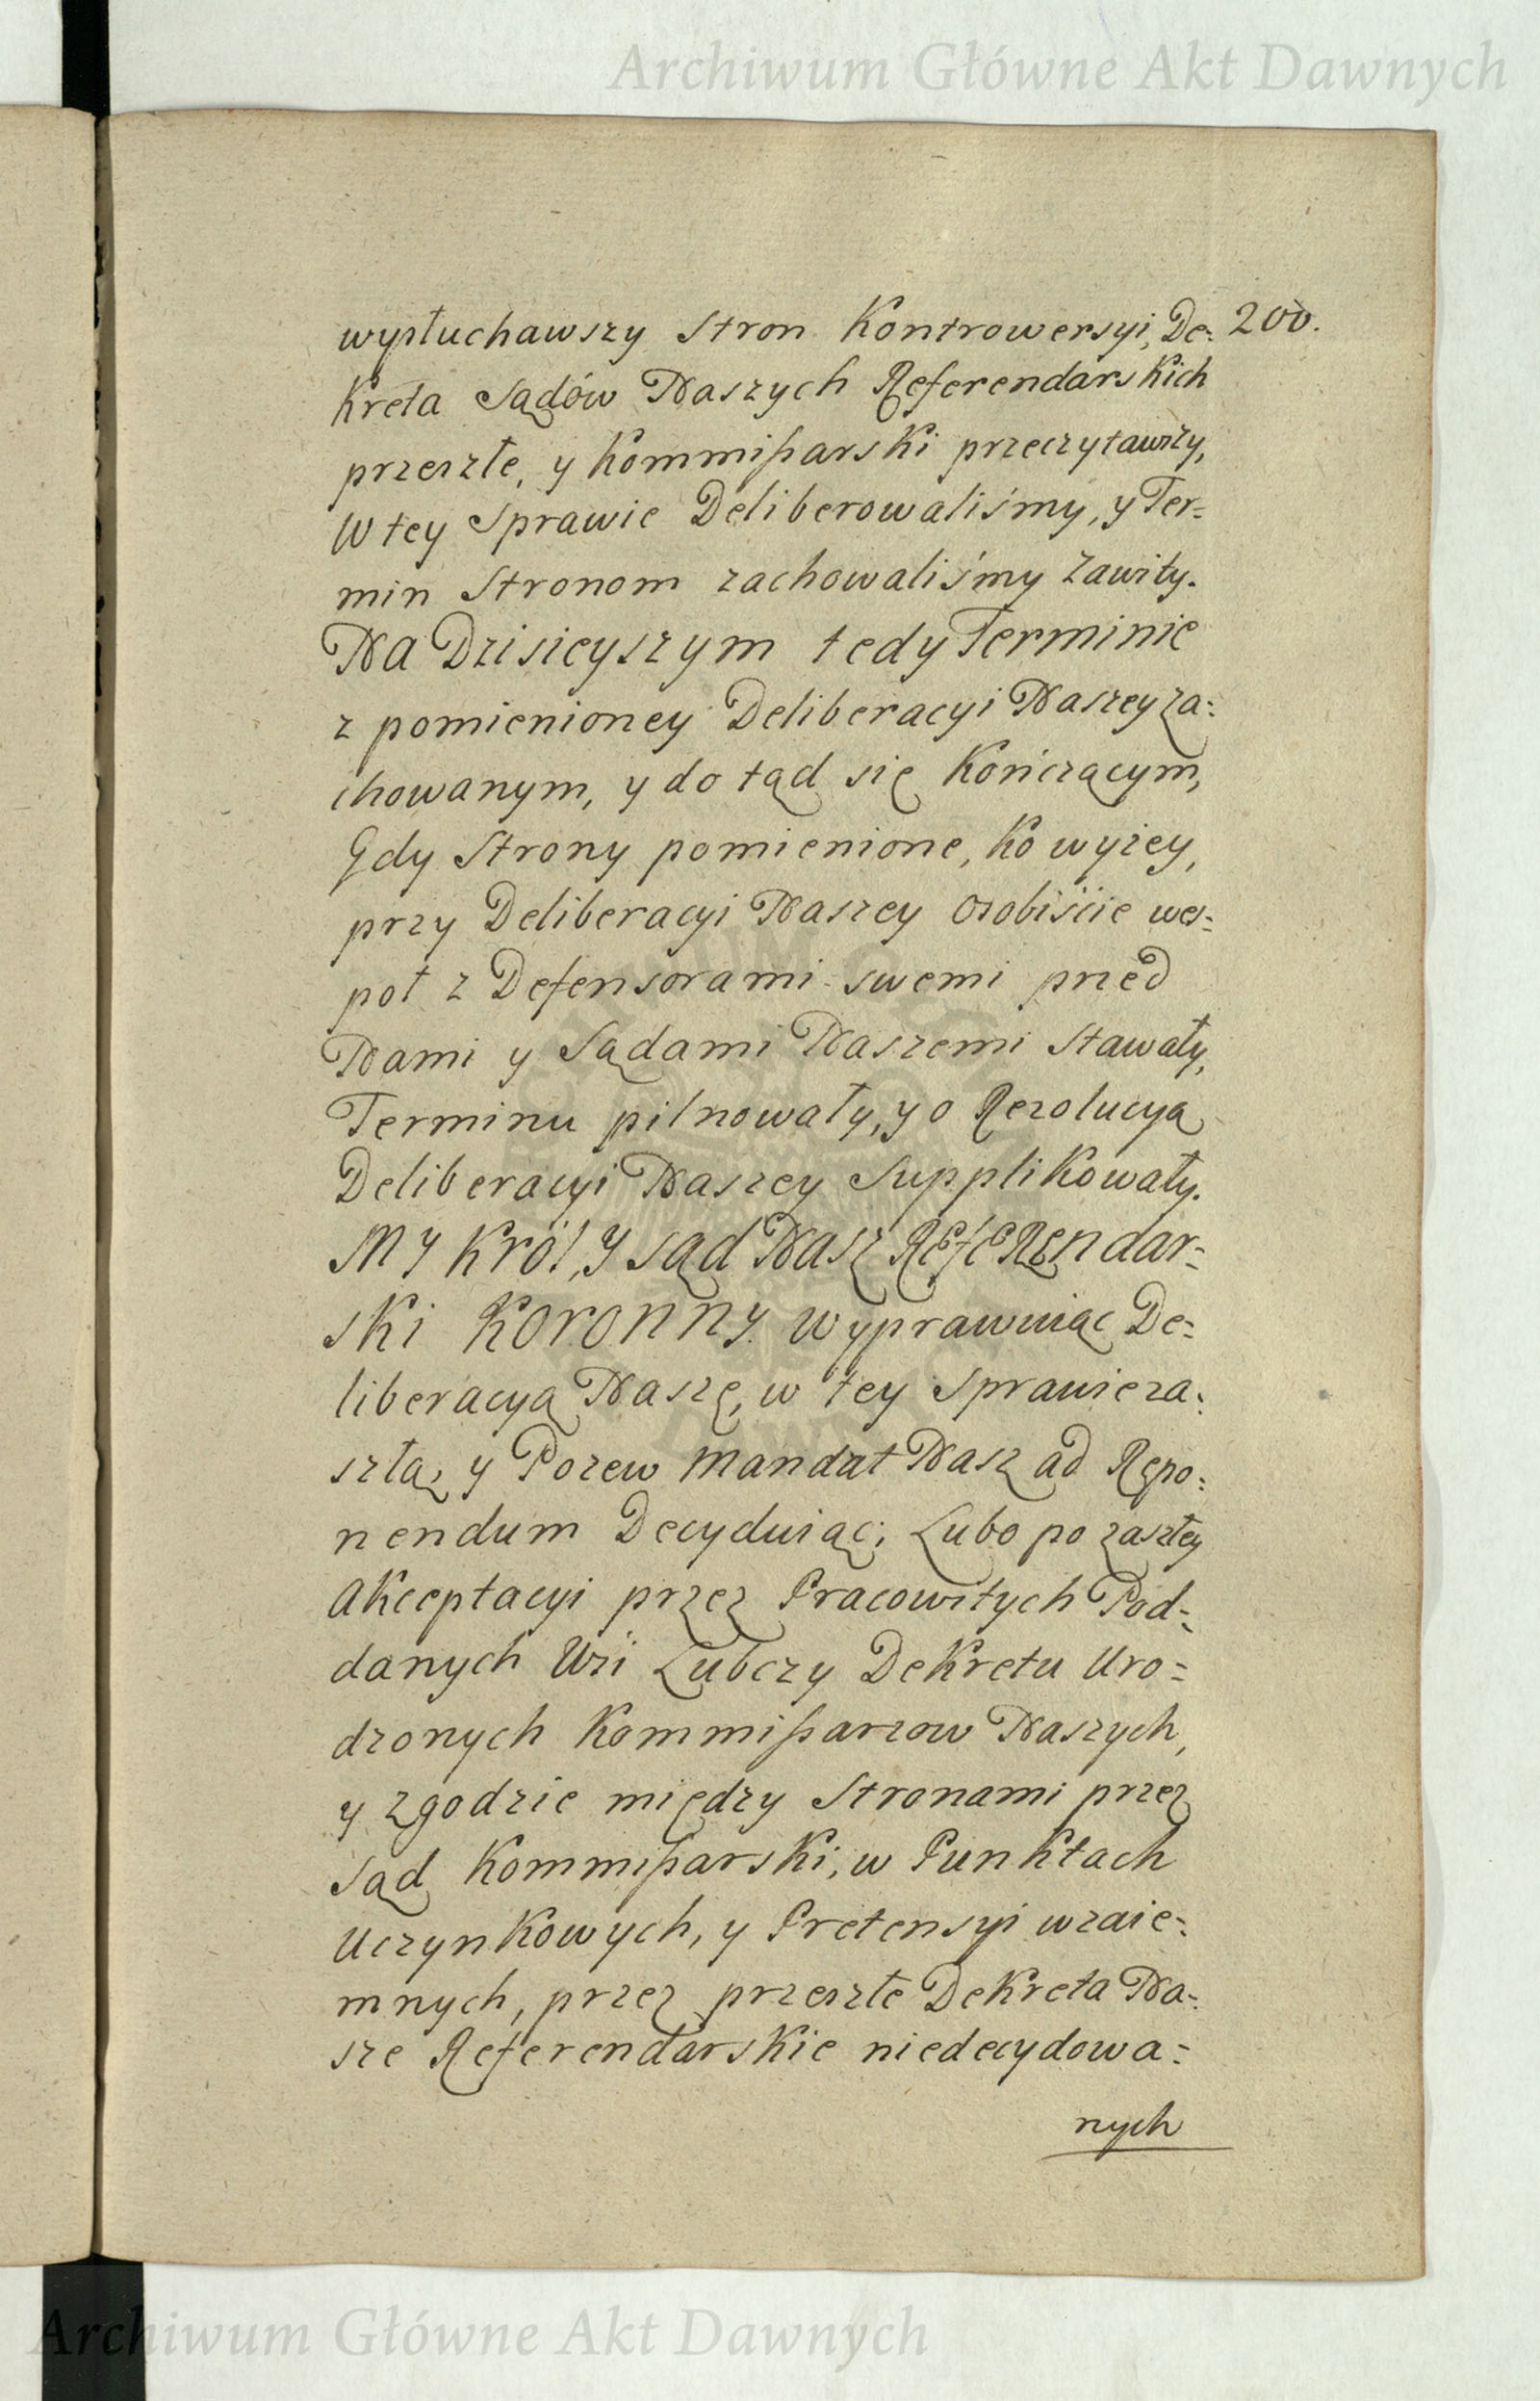 Archiwum Główne Akt Dawnych
wysłuchawszy Stron Kontrowersyi, De= 200.
kreta Sądów Naszych Referendarskich
przeszłe, y Kommißarski przeczytawszy,
W tey Sprawie Deliberowaliśmy, y Ter=
min Stronom zachowaliśmy Zawity.
Na Dzisieyszym tedy Terminie
z pomienioney Deliberacyi Naszey za=
chowanym, y do tąd się Kończącym,
Gdy Strony pomienione, Ko wyżey,
przy Deliberacyi Naszey Osobiście wes=
poł z Defensorami swemi przed
Nami y Sądami Naszemi Stawały,
Terminu pilnowały, y o Rezolucyą
Deliberacyi Naszey Supplikowały.
MY Król, y Sąd Nasz Referendar=
ski Koronny. Wyprawuiąc De=
liberacyą Naszę, w tey Sprawie za=
szłą, y Pozew Mandat Nasz ad Repo=
nendum Decyduiąc; Lubo po zaszłey
Akceptacyi przez Pracowitych Pod=
danych Wsi Lubczy Dekretu Uro=
dzonych Kommißarzow Naszych,
y zgodzie między Stronami przez
Sąd Kommißarski, w Punktach
Uczynkowych, y Pretensyi wzaie=
mnych, przez przeszłe Dekreta Na=
sze Referendarskie niedecydowa=
nych
Archiwum Główne Akt Dawnych